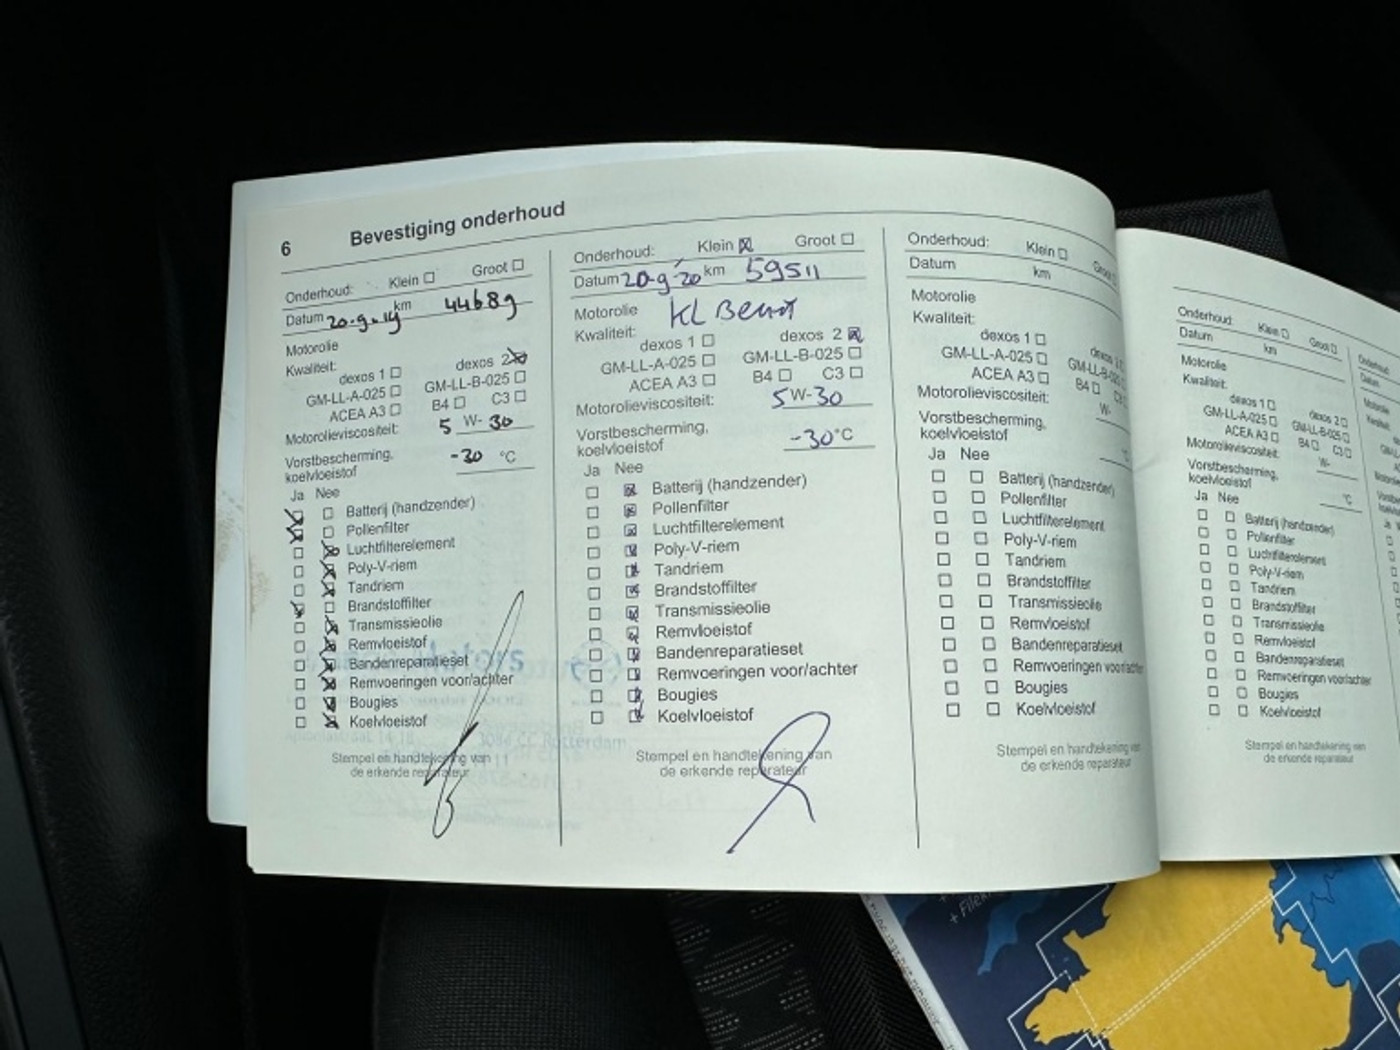 6 Bevestiging onderhoud
Onderhoud: Klein Groot
Datum 20-9-19 km 44689
Motorolie
Kwaliteit:
dexos 1 dexos 2
GM-LL-A-025 GM-LL-B-025
ACEA A3 B4 C3
Motorolieviscositeit: 5 W- 30
Vorstbescherming,
koelvloeistof -30 °C
Ja Nee
Batterij (handzender)
Pollenfilter
Luchtfilterelement
Poly-V-riem
Tandriem
Brandstoffilter
Transmissieolie
Remvloeistof
Bandenreparatieset
Remvoeringen voor/achter
Bougies
Koelvloeistof
Stempel en handtekening van
de erkende reparateur
Onderhoud: Klein Groot
Datum 20-9-20 km 59511
Motorolie Kl Beurt
Kwaliteit:
dexos 1 dexos 2
GM-LL-A-025 GM-LL-B-025
ACEA A3 B4 C3
Motorolieviscositeit: 5 W-30
Vorstbescherming,
koelvloeistof -30 °C
Ja Nee
Batterij (handzender)
Pollenfilter
Luchtfilterelement
Poly-V-riem
Tandriem
Brandstoffilter
Transmissieolie
Remvloeistof
Bandenreparatieset
Remvoeringen voor/achter
Bougies
Koelvloeistof
Stempel en handtekening van
de erkende reparateur
Onderhoud: Klein
Datum km
Motorolie
Kwaliteit:
dexos 1 dexos
GM-LL-A-025 GM-LL-B-025
ACEA A3 B4
Motorolieviscositeit: W-
Vorstbescherming,
koelvloeistof
Ja Nee
Batterij (handzender)
Pollenfilter
Luchtfilterelement
Poly-V-riem
Tandriem
Brandstoffilter
Transmissieolie
Remvloeistof
Bandenreparatieset
Remvoeringen voor/achter
Bougies
Koelvloeistof
Stempel en handtekening van
de erkende reparateur
Onderhoud: Klein Groot
Datum km
Motorolie
Kwaliteit:
dexos 1 dexos 2
GM-LL-A-025 GM-LL-B-025
ACEA A3 B4 C3
Motorolieviscositeit: W-
Vorstbescherming,
koelvloeistof °C
Ja Nee
Batterij (handzender)
Pollenfilter
Luchtfilterelement
Poly-V-riem
Tandriem
Brandstoffilter
Transmissieolie
Remvloeistof
Bandenreparatieset
Remvoeringen voor/achter
Bougies
Koelvloeistof
Stempel en handtekening van
de erkende reparateur